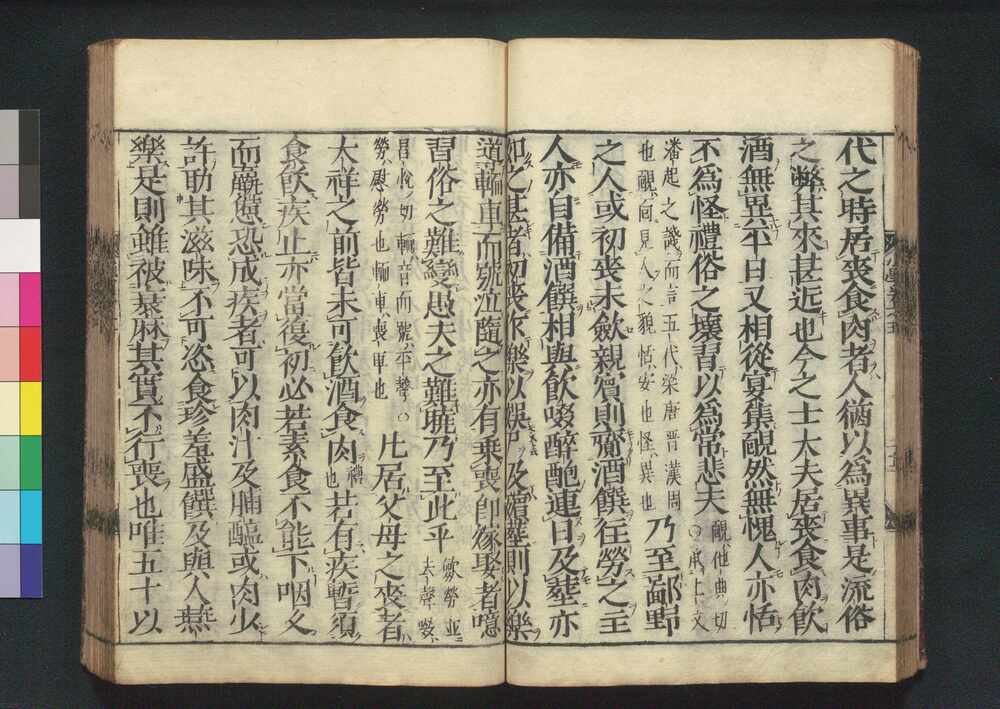 代之時居喪食肉者人猶以為異事是流俗
之弊其來甚近也今之士大夫居喪食肉飲
酒無異平日又相從宴集靦然無愧人亦恬
不為怪禮俗之壞習以為常悲夫靦他典切〇承上文
潘起之譏而言五代梁唐晉漢周也靦面見人之貌恬安也怪異也乃至鄙野
之人或初喪未斂親賓則齎酒饌往勞之主
人亦自備酒饌相與飲啜醉飽連日及葬亦
如之甚者初喪作樂以娛尸及殯葬則以樂
道輀車而號泣隨之亦有乗喪即嫁娶者噫
習俗之難變愚夫之難曉乃至此乎斂勞並去聲啜
昌悅切輀音而號平聲〇勞慰勞也輀車喪車也凡居父母之喪者
大祥之前皆未可飲酒食肉禫也若有疾暫須
食飲疾止亦當復初必若素食不能下咽久
而羸憊恐成疾者可以肉汁及脯醢或肉少
許助其滋味不可恣食珍羞盛饌及與人燕
樂是則雖被衰麻其實不行喪也唯五十以